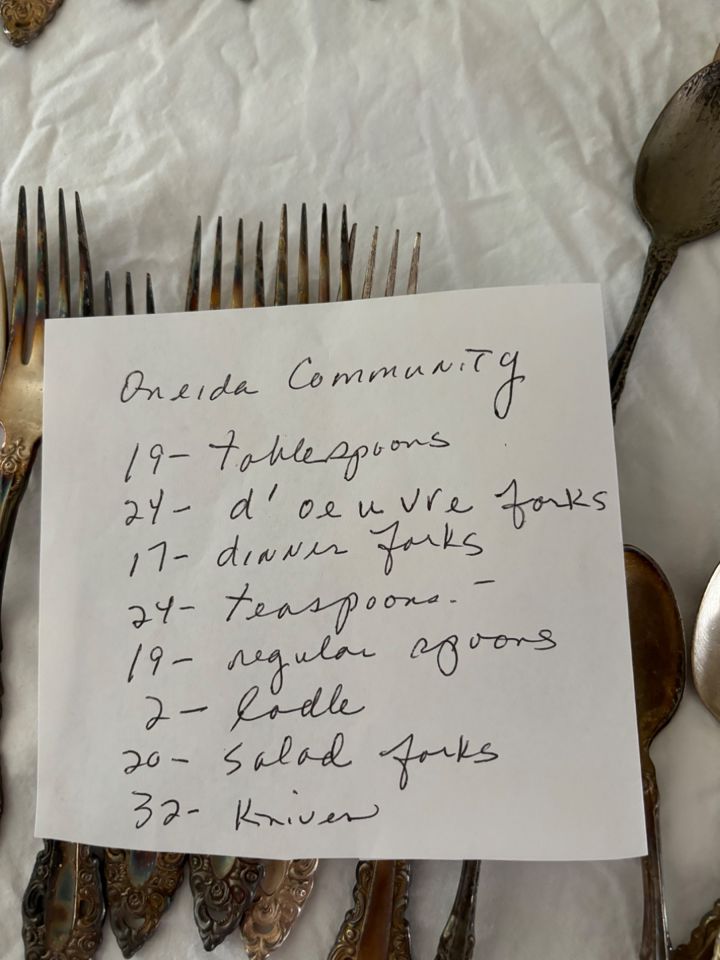 Oneida Community
19- tablespoons
24- d'oeuvre forks
17- dinner forks
24- teaspoons. -
19- regular spoons
2- ladle
20- salad forks
32- Knives